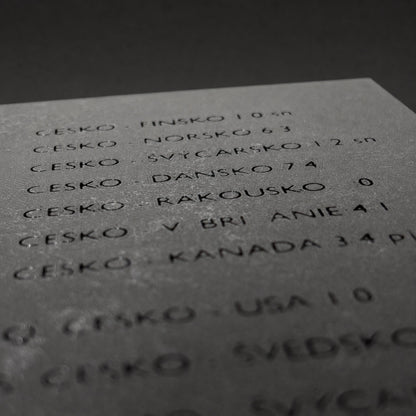 ČESKO - FINSKO 1 0 sn
ČESKO - NORSKO 6 3
ČESKO - ŠVÝCARSKO 1 2 sn
ČESKO - DÁNSKO 7 4
ČESKO RAKOUSKO 0
ČESKO V BRI ANIE 4 1
ČESKO - KANADA 3 4 p
ČESKO - USA 1 0
ČESKO ŠVÉDSKO